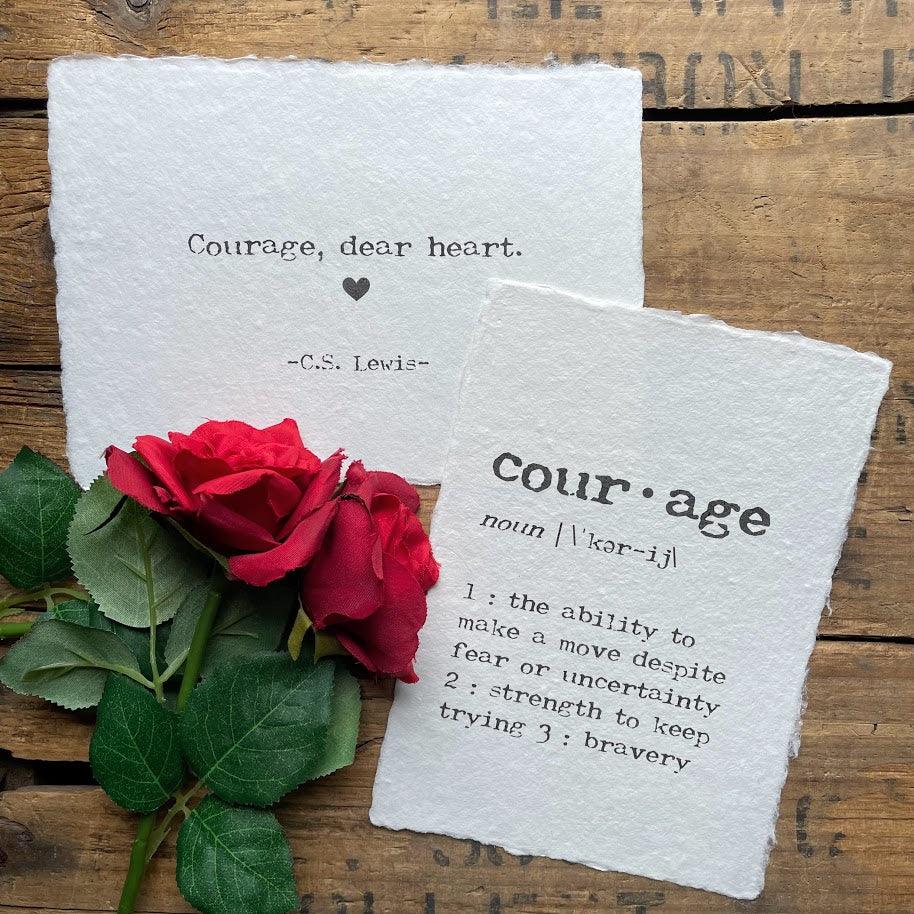 Courage, dear heart.
-C.S. Lewis-
cour·age
noun |\ˈkər-ij\
1 : the ability to
make a move despite
fear or uncertainty
2 : strength to keep
trying 3 : bravery